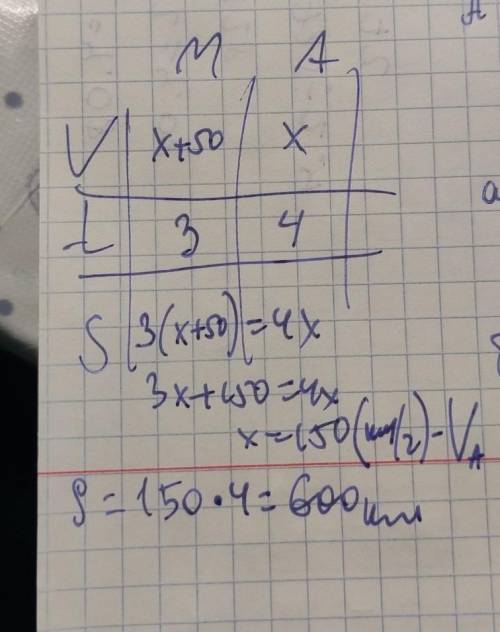 М А
V x+50 x
t 3 4
S 3(x+50)=4x
3x+150=4x
x=150(км/г)-VА
S=150·4=600км